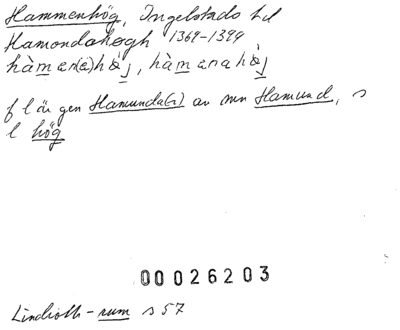 Hammenhög, Ingelstads hd
Hamondahøgh 1369-1399
hàman(a)hö̀j, hàmanahö̀j
f l är gen Hamunda(r) av mn Hamund, s
l hög
00026203
Lindroth - rum s 57